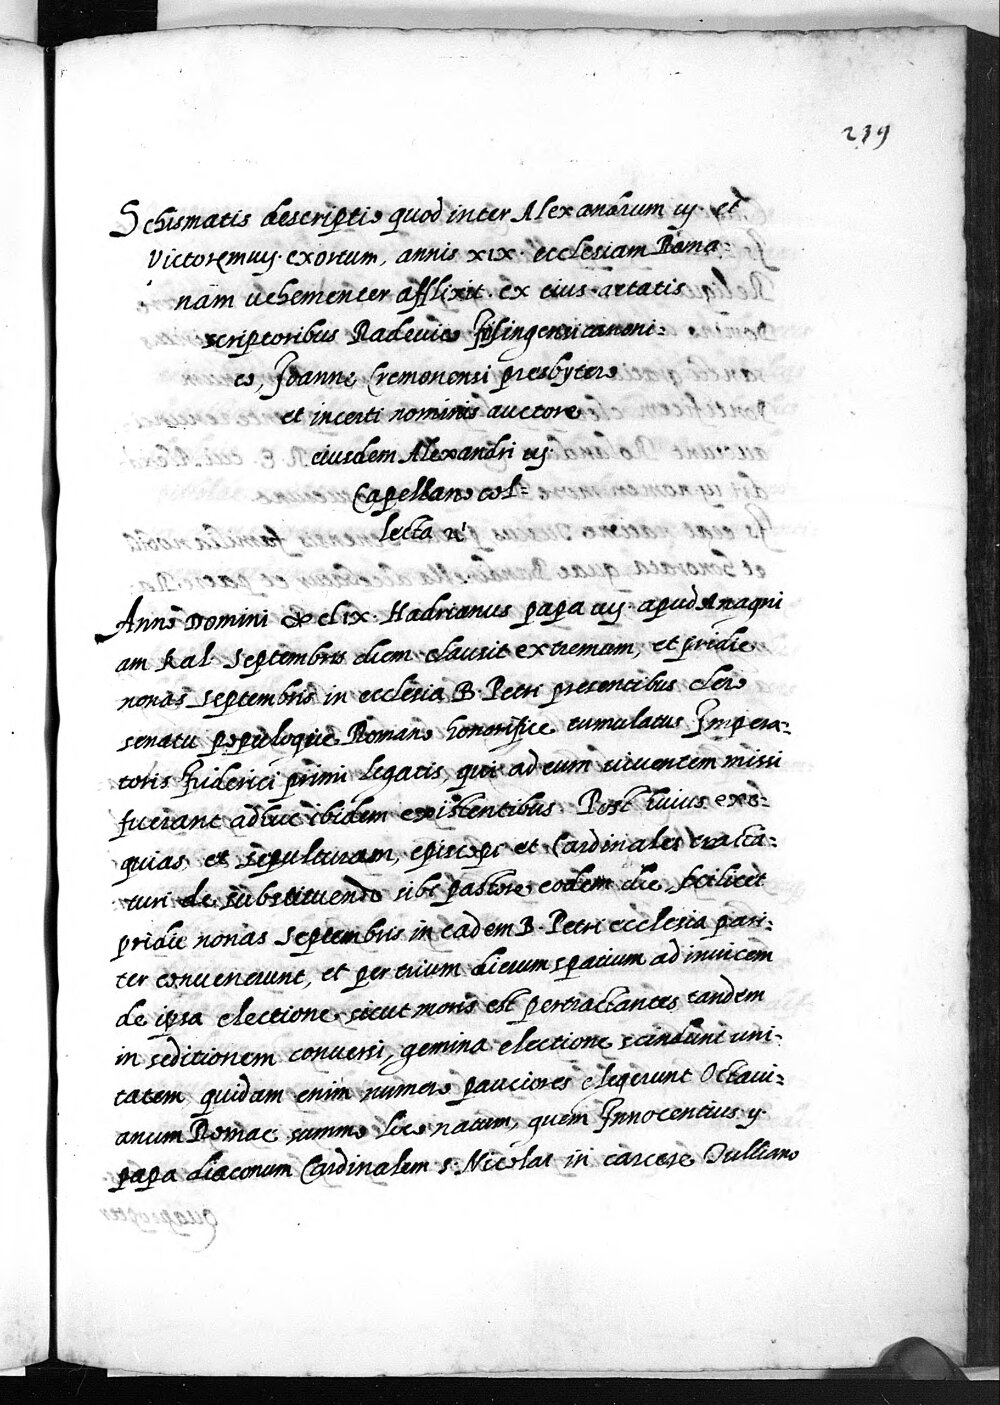 239
Schismatis descriptio quod inter Alexandrum iij. et
Victorem iiij. exortum, annis xix. ecclesiam Roma-
nam uehementer afflixit. ex eius aetatis
scriptoribus Radeuico Frisingensi canoni-
co, Joanne Cremonensi presbytero
et incerti nominis auctore
eiusdem Alexandri iij.
Capellano col-
lecta
Anno Domini clix. Hadrianus papa iiij. apud Anagni
am Kal. Septembris diem clausit extremum, et pridie
nonas septembris in ecclesia B. Petri presentibus clero
senatu populoque Romano honorifice tumulatus Impera-
toris Friderici primi legatis, qui ad eum uiuentem missi
fuerant adhuc ibidem existentibus. Post huius exe-
quias, et sepulturam, episcopi et Cardinales tracta-
turi de substituendo sibi pastore eodem die scilicet
pridie nonas Septembris in eadem B. Petri ecclesia pari-
ter conuenerunt, et per trium dierum spatium ad inuicem
de ipsa electione sicut moris est pertractantes tandem
in seditionem conuersi, gemina electione scindunt uni-
tatem quidam enim numero pauciores elegerunt Octaui-
anum Romae summo loco natum, quem Innocentius ij.
papa diaconum Cardinalem s. Nicolai in carcere Tulliano